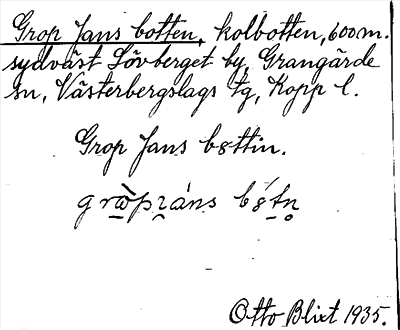 Grop Jans botten, kolbotten, 600 m.
sydväst Lövberget by, Grangärde
sn, Västerbergslags tg, Kopp l.
Grop Jans b8ttin.
Otto Blixt 1935.